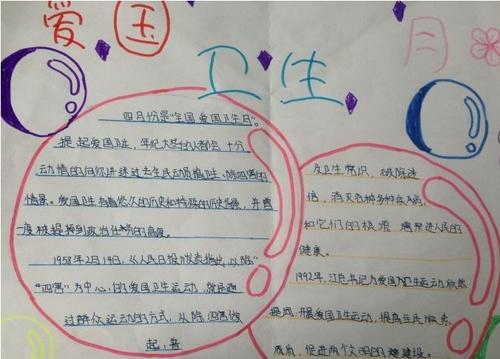 爱国卫生月
四月份是"全国爱国卫生日"。
提起爱国卫生，年纪大些的人都会十分
动情的向你讲述过去全民动员搞卫生，除四害的
情景。爱国卫生有着悠久的历史和特殊的历史背景，并曾一
度被提挌到政治任务的高度。
1958年2月14日，《人民日报》发表指出，以除
"四害"为中心，的爱国卫生运动，就是通
过群众运动的方式，从除四害做
起，普
及卫生常识，破除迷
信，消灭各种多种疾病
和它们的根源，增采进人民的
健康。
1992年，江总书记为爱国卫生运动欣然
提词，开展爱国卫生运动，提高全民族素
质，促进两个文明的建设。